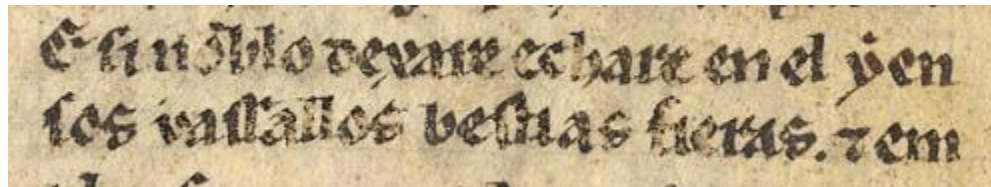 E si nõ blo dexare echare en el ẏ en
sos vassallos bestias fieras. ⁊ em